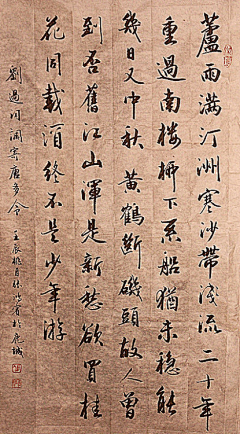 蘆雨满汀洲寒沙帶浅流二十年
重過南樓柳下系船猶未穩能
幾日又中秋黄鶴断磯頭故人曾
到否舊江山渾是新愁欲買桂
花同載酒終不是少年游
劉過詞調寄唐多令 壬辰桃月於鹿城